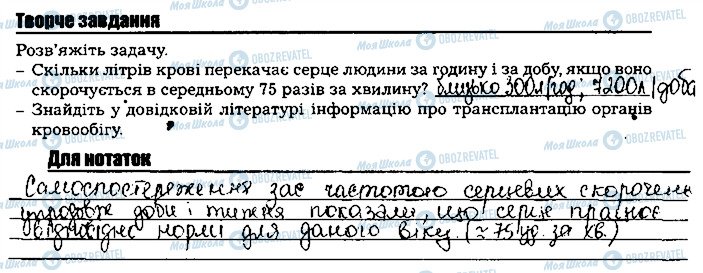 Творче завдання
Розв'яжіть задачу.
– Скільки літрів крові перекачає серце людини за годину і за добу, якщо воно
скорочується в середньому 75 разів за хвилину? близько 300л/год; 7200л/доба
– Знайдіть у довідковій літературі інформацію про трансплантацію органів
кровообігу.
Для нотаток
Самоспостереження за частотою серцевих скорочень
упродовж доби і тижня показали, що серце працює
відповідно норми для даного віку. (≈75 уд. за хв.)